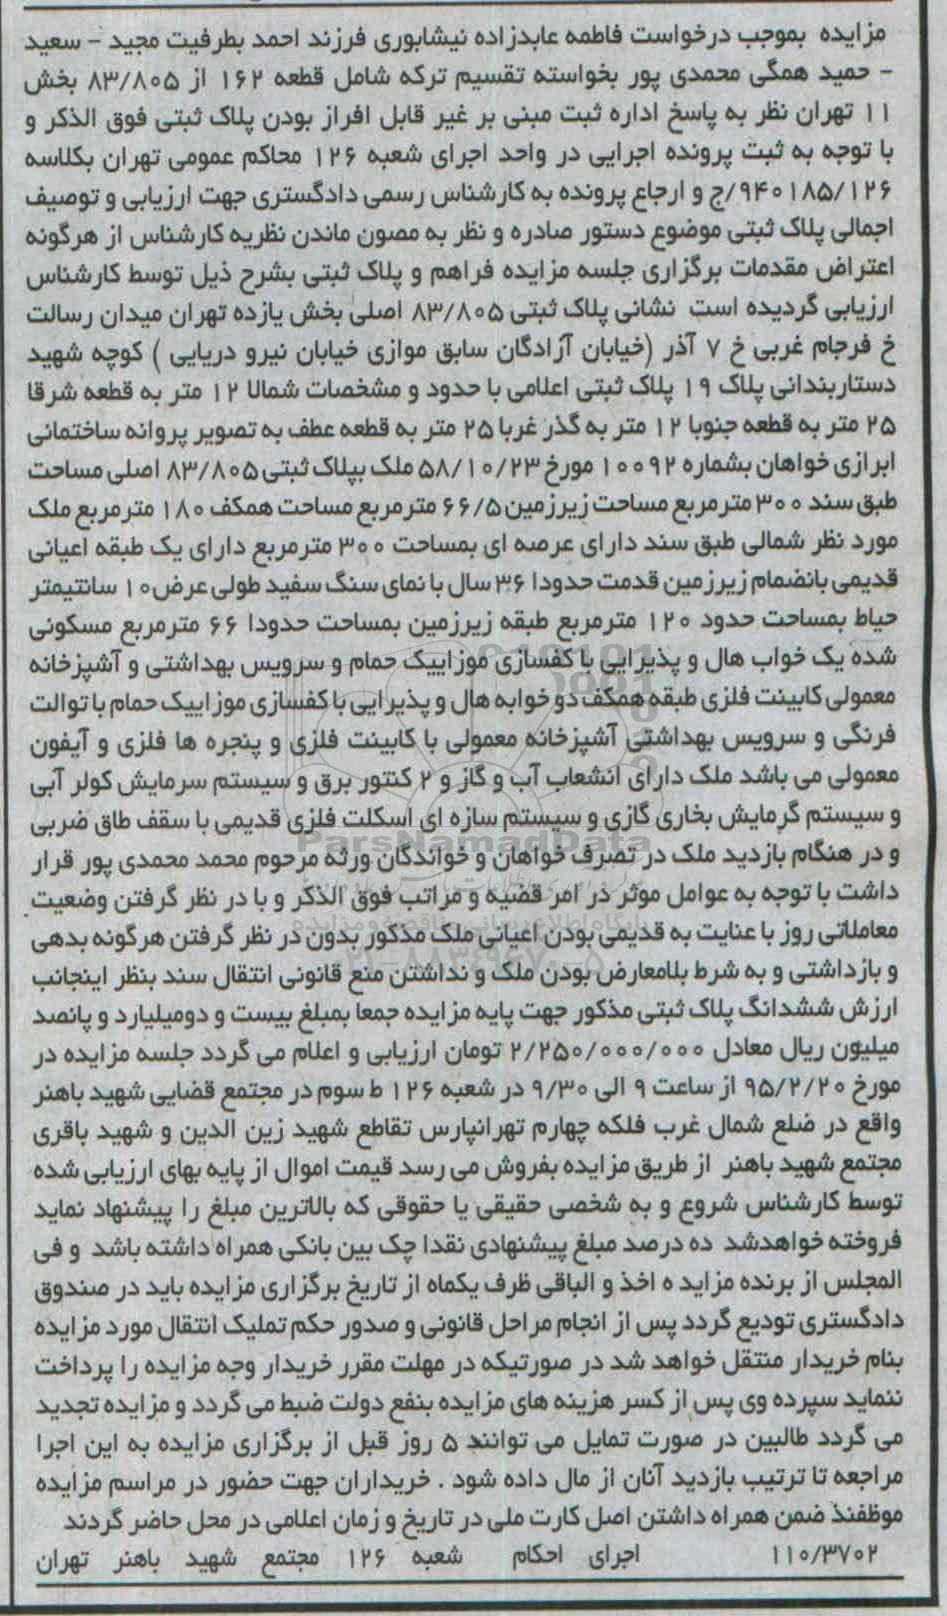 مزایده بموجب درخواست فاطمه عابدزاده نیشابوری فرزند احمد بطرفیت مجید - سعید
- حمید همگی محمدی پور بخواسته تقسیم ترکه شامل قطعه ۱۶۲ از ۸۳/۸۰۵ بخش
۱۱ تهران نظر به پاسخ اداره ثبت مبنی بر غیر قابل افراز بودن پلاک ثبتی فوق الذکر و
با توجه به ثبت پرونده اجرایی در واحد اجرای شعبه ۱۲۶ محاکم عمومی تهران بکلاسه
۹۴۰۱۸۵/۱۲۶/ج و ارجاع پرونده به کارشناس رسمی دادگستری جهت ارزیابی و توصیف
اجمالی پلاک ثبتی موضوع دستور صادره و نظر به مصون ماندن نظریه کارشناس از هرگونه
اعتراض مقدمات برگزاری جلسه مزایده فراهم و پلاک ثبتی بشرح ذیل توسط کارشناس
ارزیابی گردیده است نشانی پلاک ثبتی ۸۳/۸۰۵ اصلی بخش یازده تهران میدان رسالت
خ فرجام غربی خ ۷ آذر (خیابان آزادگان سابق موازی خیابان نیرو دریایی ) کوچه شهید
دستاربندانی پلاک ۱۹ پلاک ثبتی اعلامی با حدود و مشخصات شمالا ۱۲ متر به قطعه شرقا
۲۵ متر به قطعه جنوبا ۱۲ متر به گذر غربا ۲۵ متر به قطعه عطف به تصویر پروانه ساختمانی
ابرازی خواهان بشماره ۱۰۰۹۲ مورخ ۵۸/۱۰/۲۳ ملک بپلاک ثبتی ۸۳/۸۰۵ اصلی مساحت
طبق سند ۳۰۰ مترمربع مساحت زیرزمین ۶۶/۵ مترمربع مساحت همکف ۱۸۰ مترمربع ملک
مورد نظر شمالی طبق سند دارای عرصه ای بمساحت ۳۰۰ مترمربع دارای یک طبقه اعیانی
قدیمی بانضمام زیرزمین قدمت حدودا ۳۶ سال با نمای سنگ سفید طولی عرض ۱۰ سانتیمتر
حیاط بمساحت حدود ۱۲۰ مترمربع طبقه زیرزمین بمساحت حدودا ۶۶ مترمربع مسکونی
شده یک خواب هال و پذیرایی با کفسازی موزاییک حمام و سرویس بهداشتی و آشپزخانه
معمولی کابینت فلزی طبقه همکف دو خوابه هال و پذیرایی با کفسازی موزاییک حمام با توالت
فرنگی و سرویس بهداشتی آشپزخانه معمولی با کابینت فلزی و پنجره ها فلزی و آیفون
معمولی می باشد ملک دارای انشعاب آب و گاز و ۲ کنتور برق و سیستم سرمایش کولر آبی
و سیستم گرمایش بخاری گازی و سیستم سازه ای اسکلت فلزی قدیمی با سقف طاق ضربی
ParsNamadData
و در هنگام بازدید ملک در تصرف خواهان و خواندگان ورثه مرحوم محمد محمدی پور قرار
داشت با توجه به عوامل موثر در امر قضیه و مراتب فوق الذکر و با در نظر گرفتن وضعیت
معاملاتی روز با عنایت به قدیمی بودن اعیانی ملک مذکور بدون در نظر گرفتن هرگونه بدهی
و بازداشتی و به شرط بلامعارض بودن ملک و نداشتن منع قانونی انتقال سند بنظر اینجانب
ارزش ششدانگ پلاک ثبتی مذکور جهت پایه مزایده جمعا بمبلغ بیست و دومیلیارد و پانصد
میلیون ریال معادل ۲/۲۵۰/۰۰۰/۰۰۰ تومان ارزیابی و اعلام می گردد جلسه مزایده در
مورخ ۹۵/۲/۲۰ از ساعت ۹ الی ۹/۳۰ در شعبه ۱۲۶ ط سوم در مجتمع قضایی شهید باهنر
واقع در ضلع شمال غرب فلکه چهارم تهرانپارس تقاطع شهید زین الدین و شهید باقری
مجتمع شهید باهنر از طریق مزایده بفروش می رسد قیمت اموال از پایه بهای ارزیابی شده
توسط کارشناس شروع و به شخصی حقیقی یا حقوقی که بالاترین مبلغ را پیشنهاد نماید
فروخته خواهدشد ده درصد مبلغ پیشنهادی نقدا چک بین بانکی همراه داشته باشد و فی
المجلس از برنده مزاید ه اخذ و الباقی ظرف یکماه از تاریخ برگزاری مزایده باید در صندوق
دادگستری تودیع گردد پس از انجام مراحل قانونی و صدور حکم تملیک انتقال مورد مزایده
بنام خریدار منتقل خواهد شد در صورتیکه در مهلت مقرر خریدار وجه مزایده را پرداخت
ننماید سپرده وی پس از کسر هزینه های مزایده بنفع دولت ضبط می گردد و مزایده تجدید
می گردد طالبین در صورت تمایل می توانند ۵ روز قبل از برگزاری مزایده به این اجرا
مراجعه تا ترتیب بازدید آنان از مال داده شود . خریداران جهت حضور در مراسم مزایده
موظفند ضمن همراه داشتن اصل کارت ملی در تاریخ و زمان اعلامی در محل حاضر گردند
۱۱۰/۳۷۰۲ اجرای احکام شعبه ۱۲۶ مجتمع شهید باهنر تهران